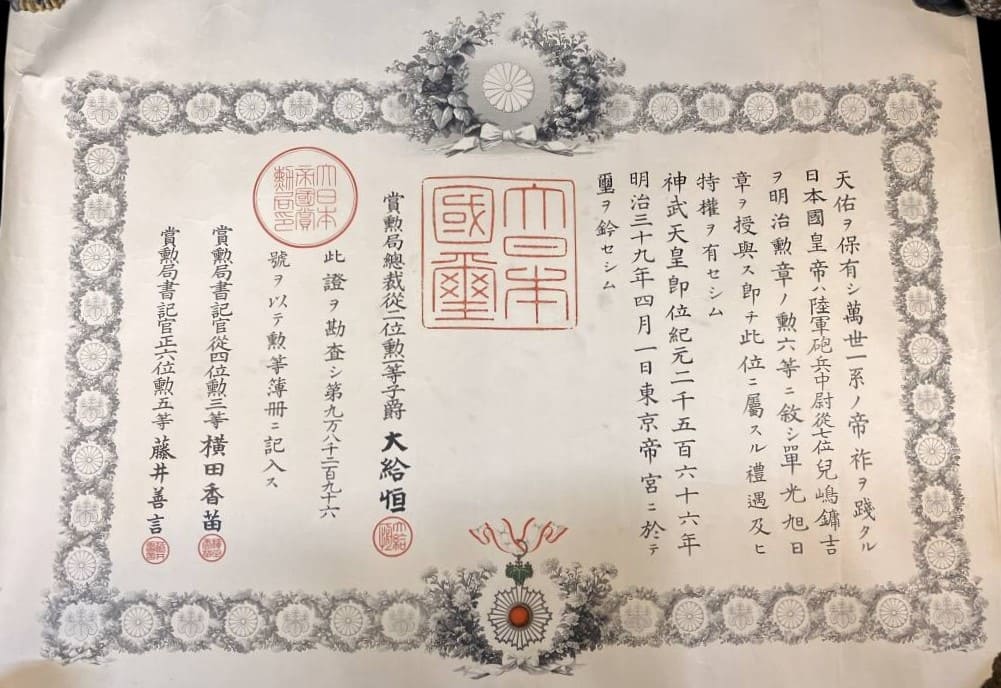 天佑ヲ保有シ萬世一系ノ帝祚ヲ踐タル
日本國皇帝ハ陸軍砲兵中尉從七位兒嶋鏞吉
ヲ明治勲章ノ勲六等ニ敘シ單光旭日
章ヲ授與ス即チ此位ニ屬スル禮遇及ヒ
特權ヲ有セシム
神武天皇即位紀元二千五百六十六年
明治三十九年四月一日東京帝宮ニ於テ
璽ヲ鈐セシム
大日本
國璽
賞勲局總裁從二位勲一等子爵 大給恒
此證ヲ勘査シ第九万八千二百九十六
號ヲ以テ勲等簿册ニ記入ス
大日本
帝國賞
勲局印
賞勲局書記官從四位勲三等 横田香苗
賞勲局書記官正六位勲五等 藤井善言